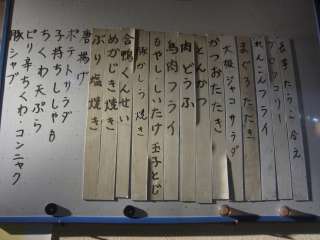 ブロッコリー
れんこんフライ
まぐろたたき
大根ジャコサラダ
かつおたたき
とんかつ
肉どうふ
鳥肉フライ
もやし しいたけ 玉子とじ
豚かしら焼き
合鴨くんせい
めかじき焼き
ぶり塩焼き
唐揚げ
ポテトサラダ
子持ちししゃも
ちくわ天ぷら
ピリ辛ちくわ・コンニャク
豚シャブ